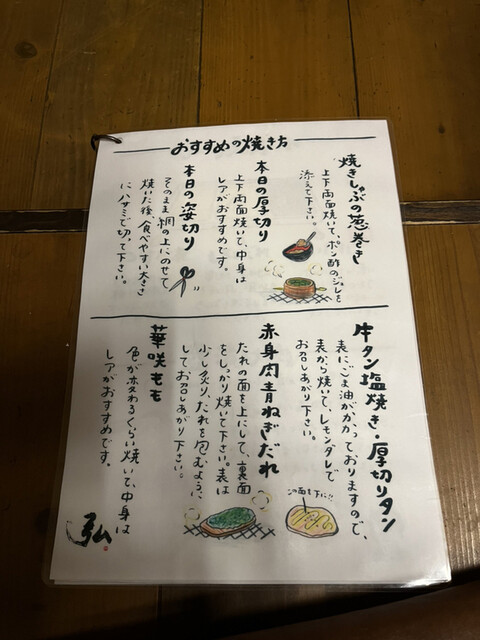 おすすめの焼き方
焼きしゃぶの葱巻き
上下両面焼いて、ポン酢のジュレを
添えて下さい。
本日の厚切り
上下両面焼いて、中身は
レアがおすすめです。
本日の姿切り
そのまま網の上にのせて
焼いた後、食べやすい大きさ
にハサミで切って下さい。
牛タン塩焼き・厚切りタン
表にごま油がかかっておりますので、
表から焼いて、レモンダレで
お召しあがり下さい。
この面を下に!!
赤身肉青ねぎだれ
たれの面を上にして、裏面
をしっかり焼いて下さい。表は
少し炙り、たれを包むように
してお召しあがり下さい。
華咲もも
色が変わるくらい焼いて、中身は
レアがおすすめです。
弘